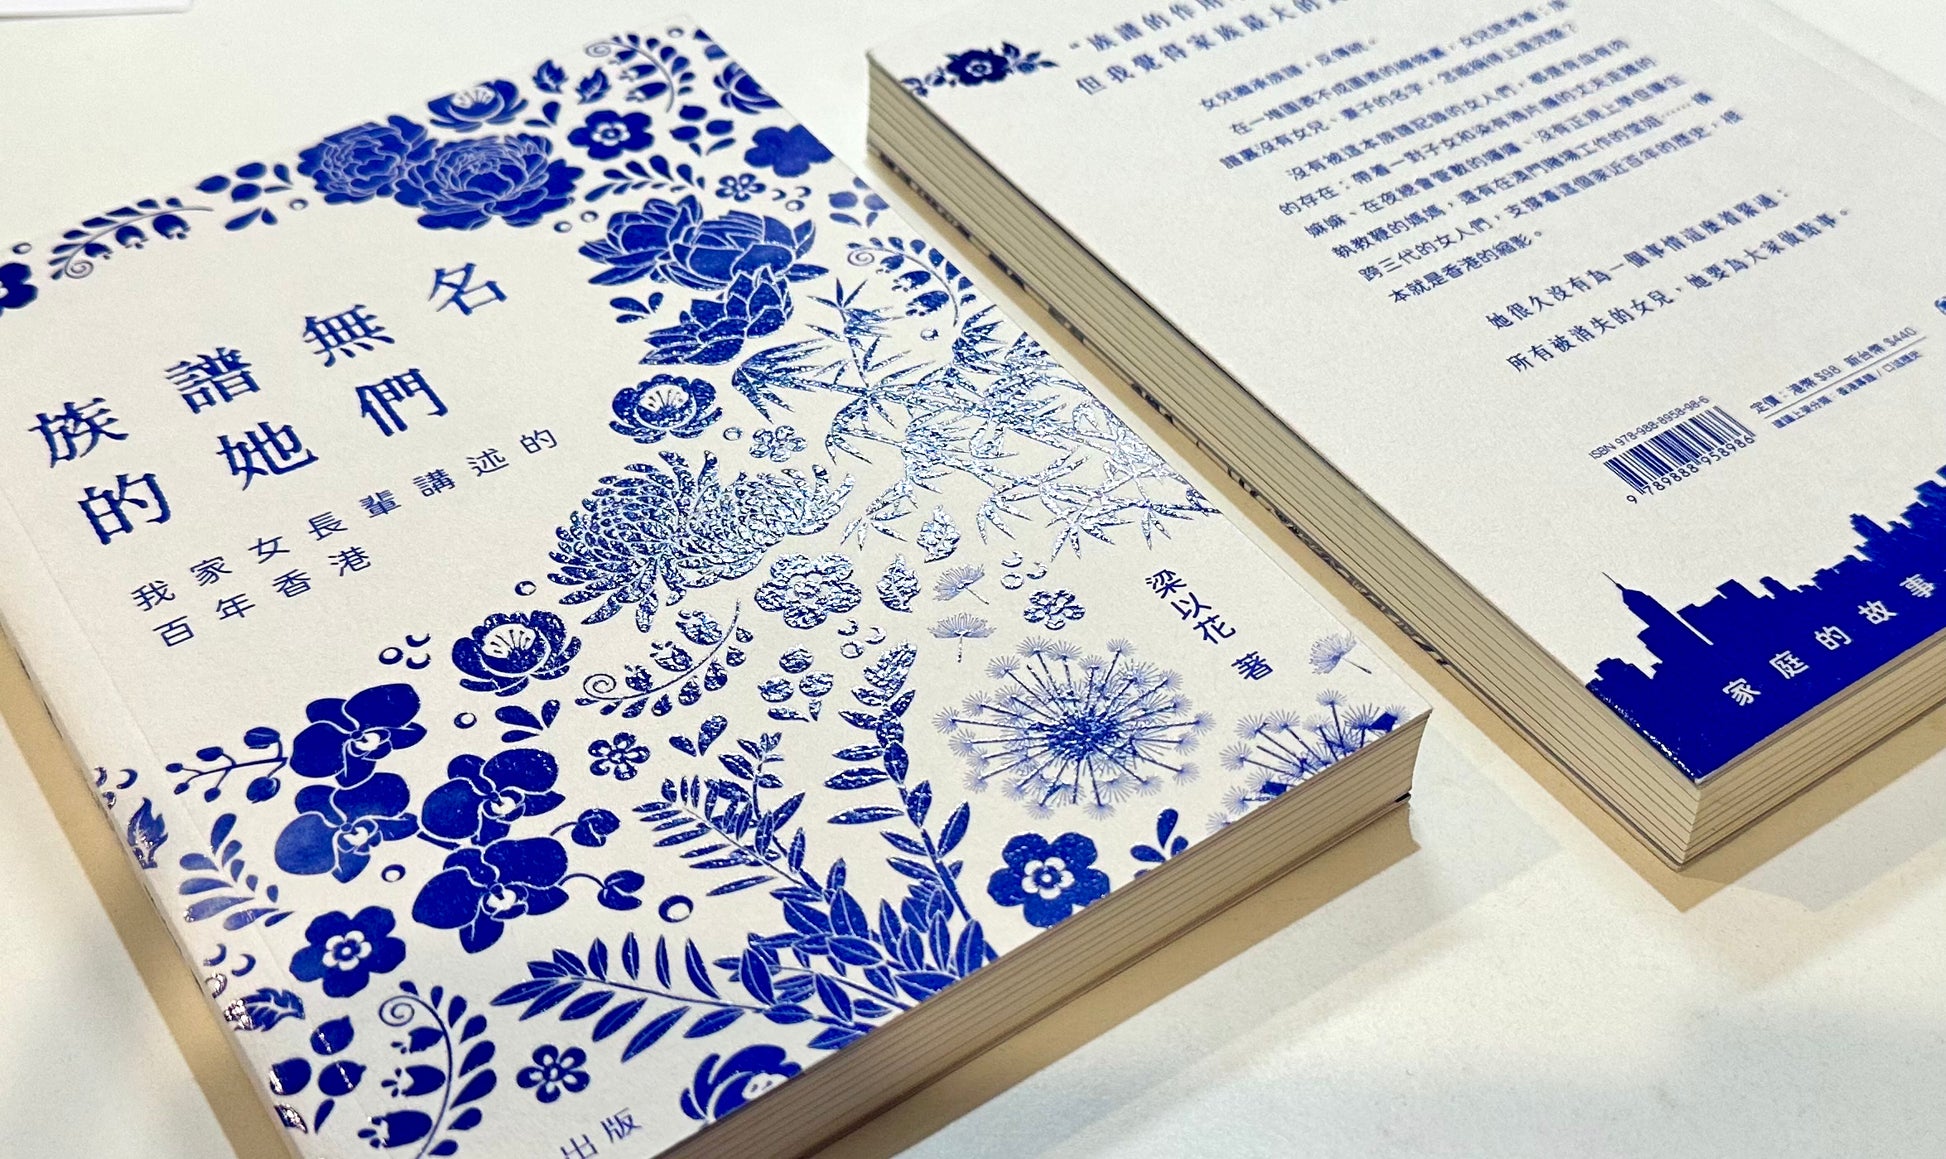 族譜無名
的她們
我家女長輩講述的
百年香港
梁以花 著
出版
"族譜的作用
但我覺得家族最大的
女兒繼承族譜，反傳統。
在一堆圖表不成圖表的線條裏，女兒想
譜裏沒有女兒、妻子的名字，怎能稱得上譜完整？
沒有被這本族譜記錄的女人們，都還有血有肉
的存在；帶着一對子女和染有鴉片癮的丈夫走難的
嫲嫲、在夜總會管數的、沒有正規上學但畢生
執教鞭的媽媽，還有在澳門賭場工作的堂姐……橫
跨三代的女人們，支撐着這個家近百年的歷史，根
本就是香港的縮影。
她很久沒有為一個事情這麼着緊過：
所有被消失的女兒，她要為大家做點事。
定價：港幣 $98 新台幣 $440
建議上架分類：香港專題 / 口述歷史
ISBN 978-988-8958-98-6
9 789888 958986
家庭的故事